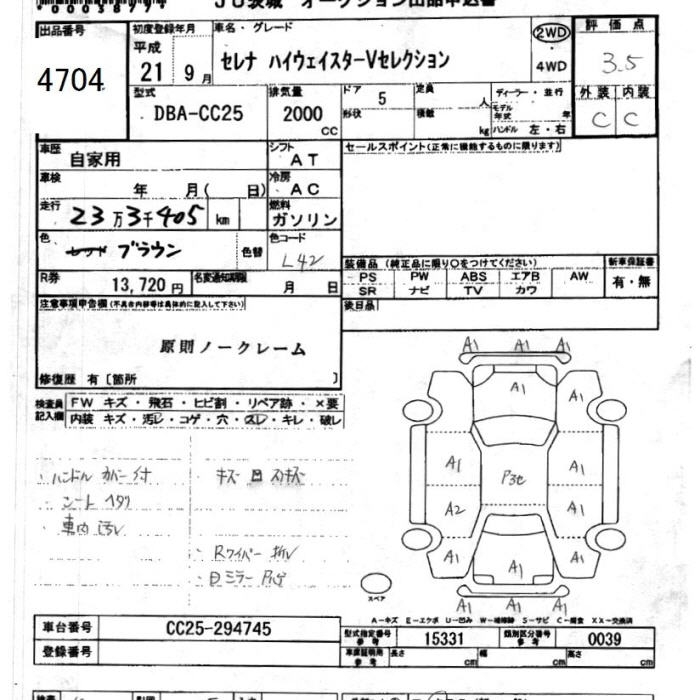 出品番号
4704
初度登録年月
平成
21 9月
車名・グレード
セレナ ハイウェイスターVセレクション
2WD
4WD
評価点
3.5
外装 内装
C C
型式
DBA-CC25
排気量
2000
cc
ドア 5
形状
定員
人
積載
kg
ディーラー・並行
モデル年式 年
ハンドル 左・右
車歴
自家用
シフト
AT
車検
年 月( 日)
冷房
AC
走行
23万3千405 km
燃料
ガソリン
色
レッド ブラウン
色替
色コード
L42
R券
13,720円
名変通知期限
月 日
セールスポイント(正常に機能するものに限ります)
装備品 (純正品に限り○をつけてください)
PS PW ABS エアB AW
SR ナビ TV カワ
新車保証書
有・無
後日品
注意事項申告欄(不具合内容等は具体的に記入して下さい)
原則ノークレーム
修復歴 有〔箇所 〕
検査員
記入欄
FW キズ・飛石・ヒビ割・リペア跡・×要
内装 キズ・汚レ・コゲ・穴・スレ・キレ・破レ
・ハンドル カバー付
・シート ヘタリ
・車内 汚レ
・Rワイパー 折レ
A1 A1 A1
A1
A1 A1
A1 A1
P3セ
A2 A1
A1 A1
A1
A1 A1 A1
スペア
A-キズ E-エクボ U-凹み W-補修跡 S-サビ C-腐食 XX-交換済
車台番号
CC25-294745
登録番号
型式指定番号
参考
15331
類別区分番号
参考
0039
車庫証明用
参考
長さ cm
幅 cm
高さ cm